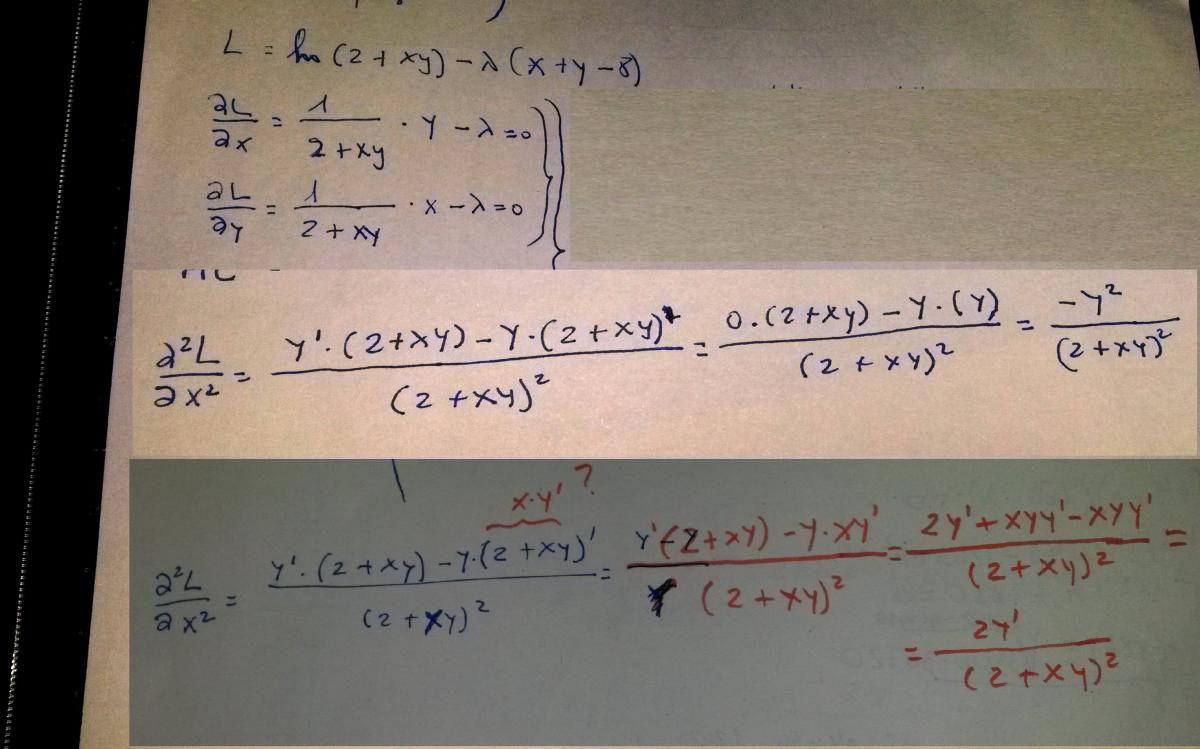 L = ln (2 + xy) - λ (x + y - 8)
∂L/∂x = 1/(2 + xy) · y - λ = 0
∂L/∂y = 1/(2 + xy) · x - λ = 0
∂²L/∂x² = (y' · (2+xy) - y · (2 + xy)')/(2 + xy)² = (0 · (2 + xy) - y · (y))/(2 + xy)² = -y²/(2 + xy)²
x·y' ?
∂²L/∂x² = (y' · (2 + xy) - y · (2 + xy)')/(2 + xy)² = (y'(2 + xy) - y · xy')/(2 + xy)² = (2y' + xyy' - xyy')/(2 + xy)² =
= 2y'/(2 + xy)²